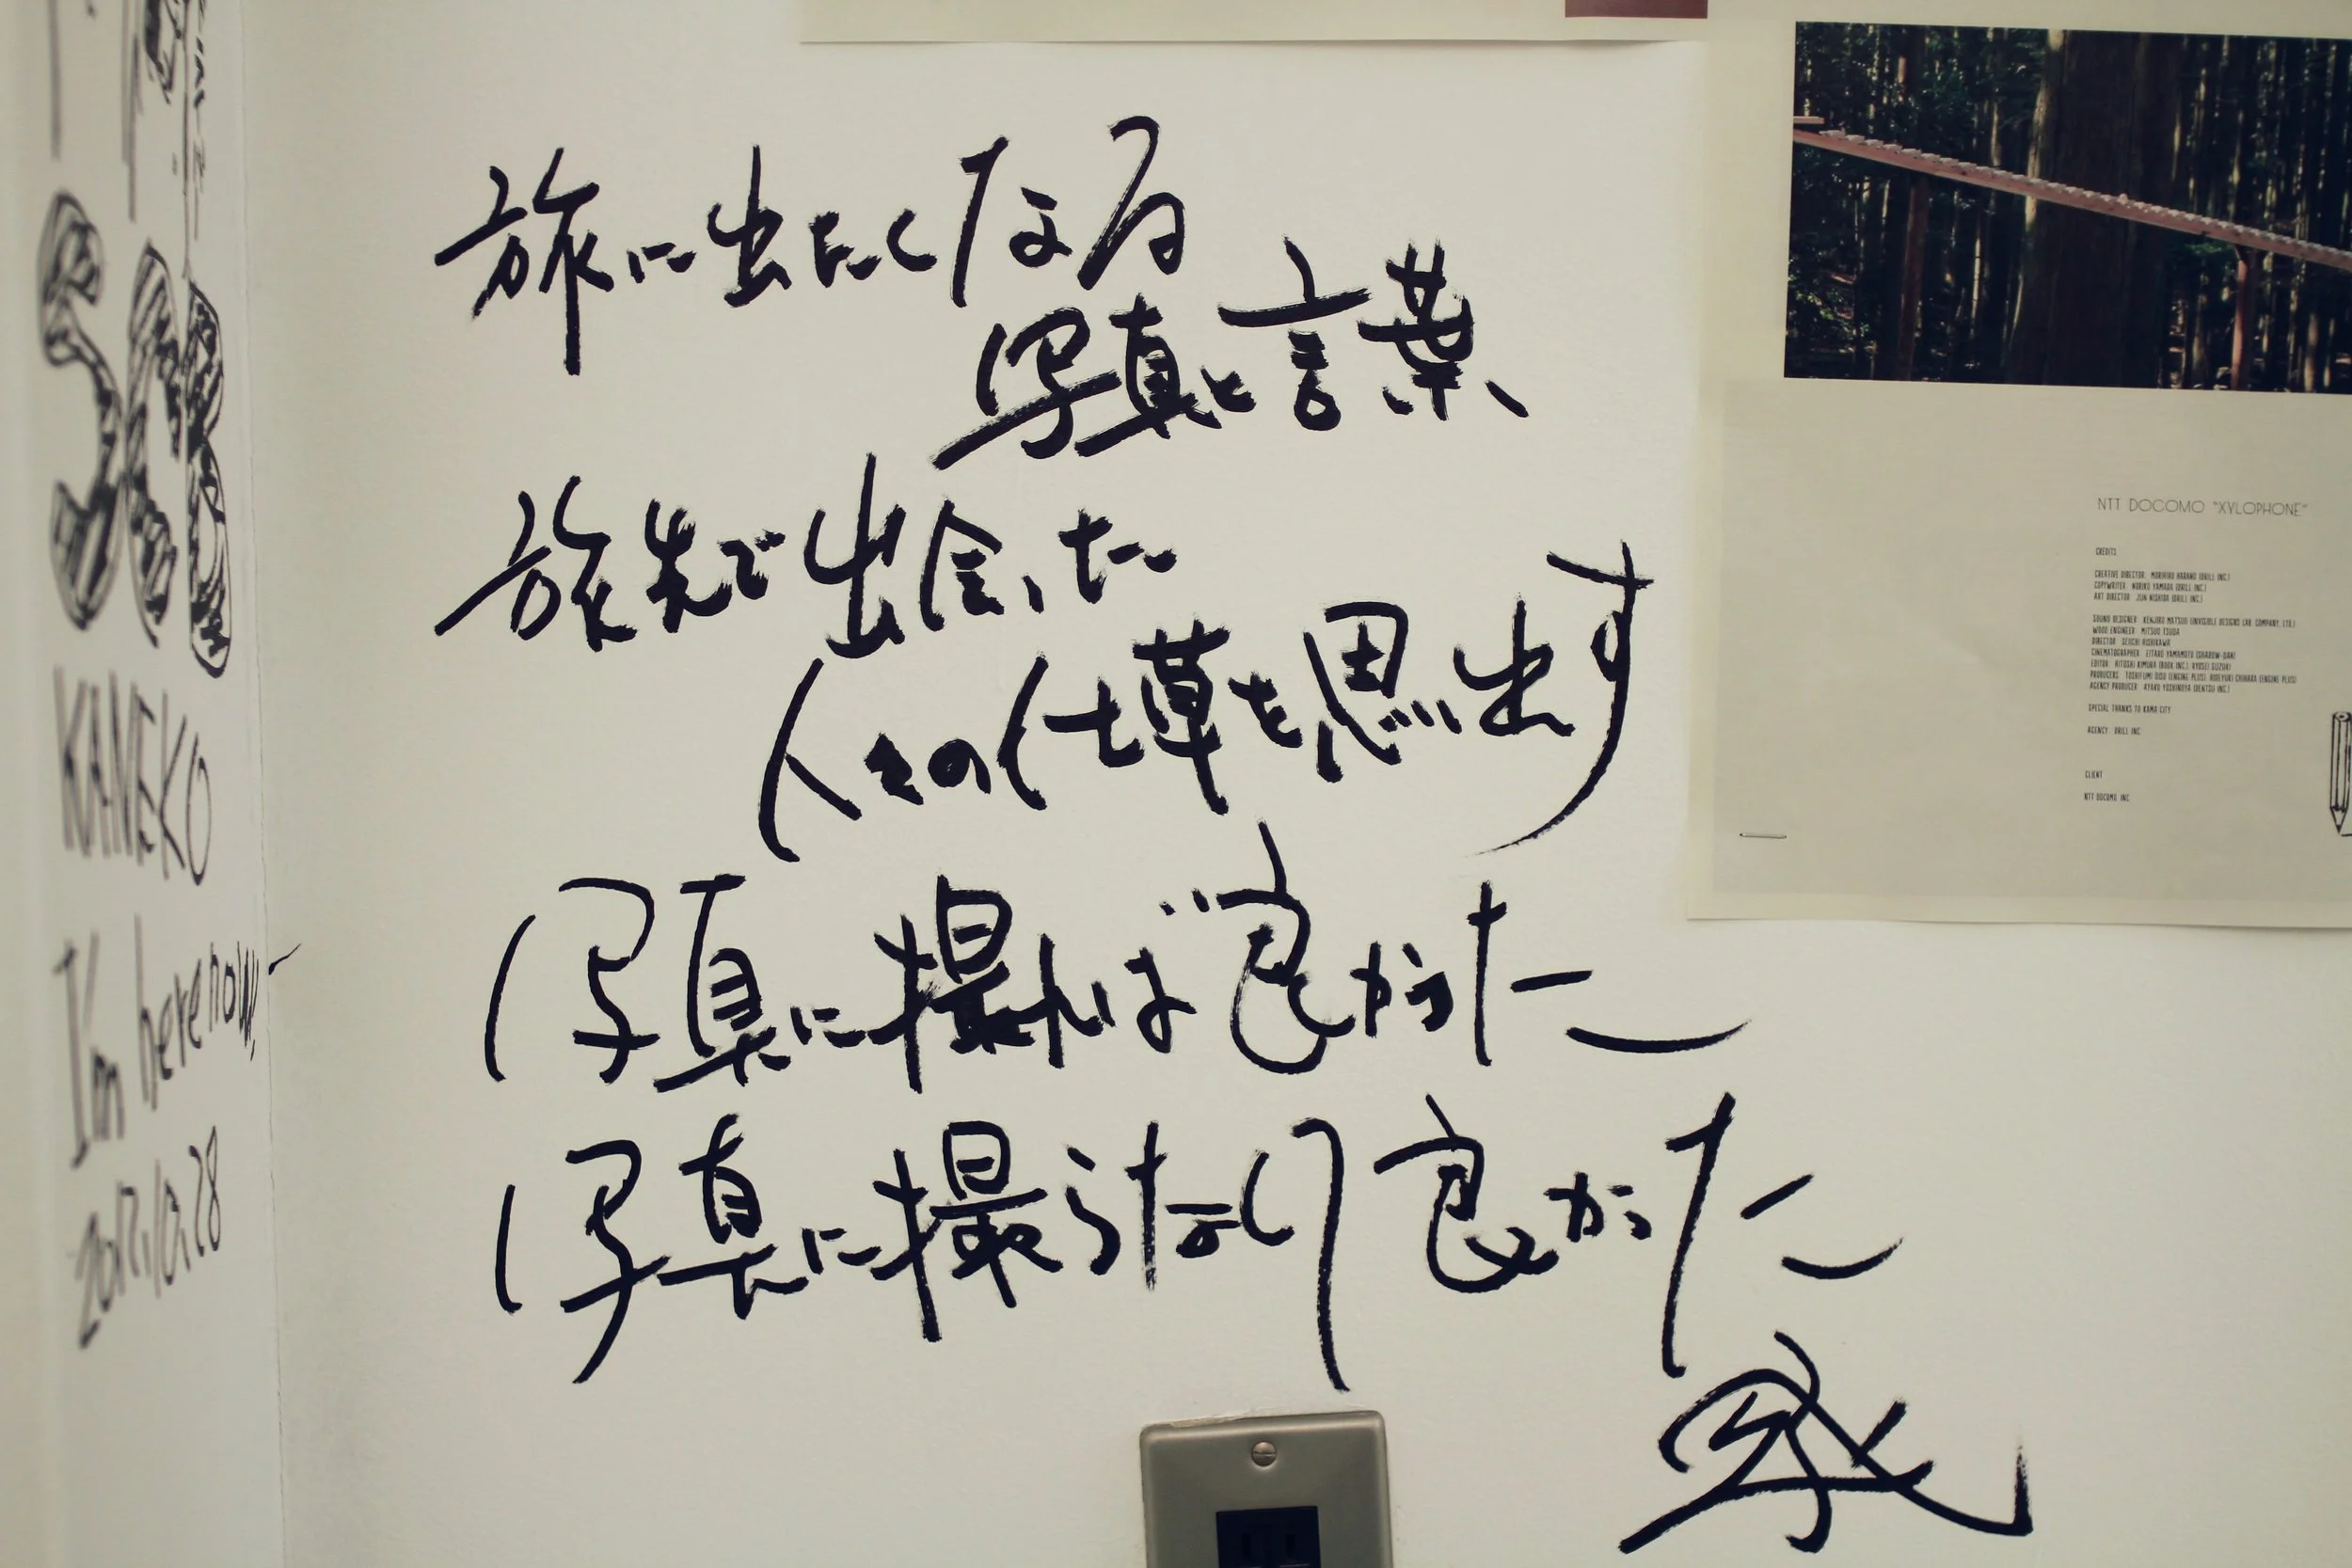 旅に出たくなる
写真と言葉、
旅先で出会った
人々の仕草を思い出す
写真に撮れば良かった
写真に撮らなくて良かった
KANEKO
I'm here now,
2017.10.28
NTT DOCOMO "XYLOPHONE"
CREDITS
CREATIVE DIRECTOR: MORIHIRO HARANO (DRILL INC.)
COPYWRITER: NORIKO YAMADA (DRILL INC.)
ART DIRECTOR: JUN NISHIDA (DRILL INC.)
SOUND DESIGNER: KENJIRO MATSUO (INVISIBLE DESIGNS LAB. COMPANY, LTD.)
WOOD ENGINEER: MITSUO TSUDA
DIRECTOR: SEIICHI HISHIKAWA
CINEMATOGRAPHER: EITARO YAMAMOTO (SHADOW-DAN)
EDITOR: HITOSHI KIMURA (BOOK INC.), RYUSEI SUZUKI
PRODUCERS: TOSHIFUMI OISO (ENGINE PLUS), HIDEYUKI CHIHARA (ENGINE PLUS)
AGENCY PRODUCER: AYAKO YOSHINOYA (DENTSU INC.)
SPECIAL THANKS TO KAMA CITY
AGENCY: DRILL INC.
CLIENT
NTT DOCOMO INC